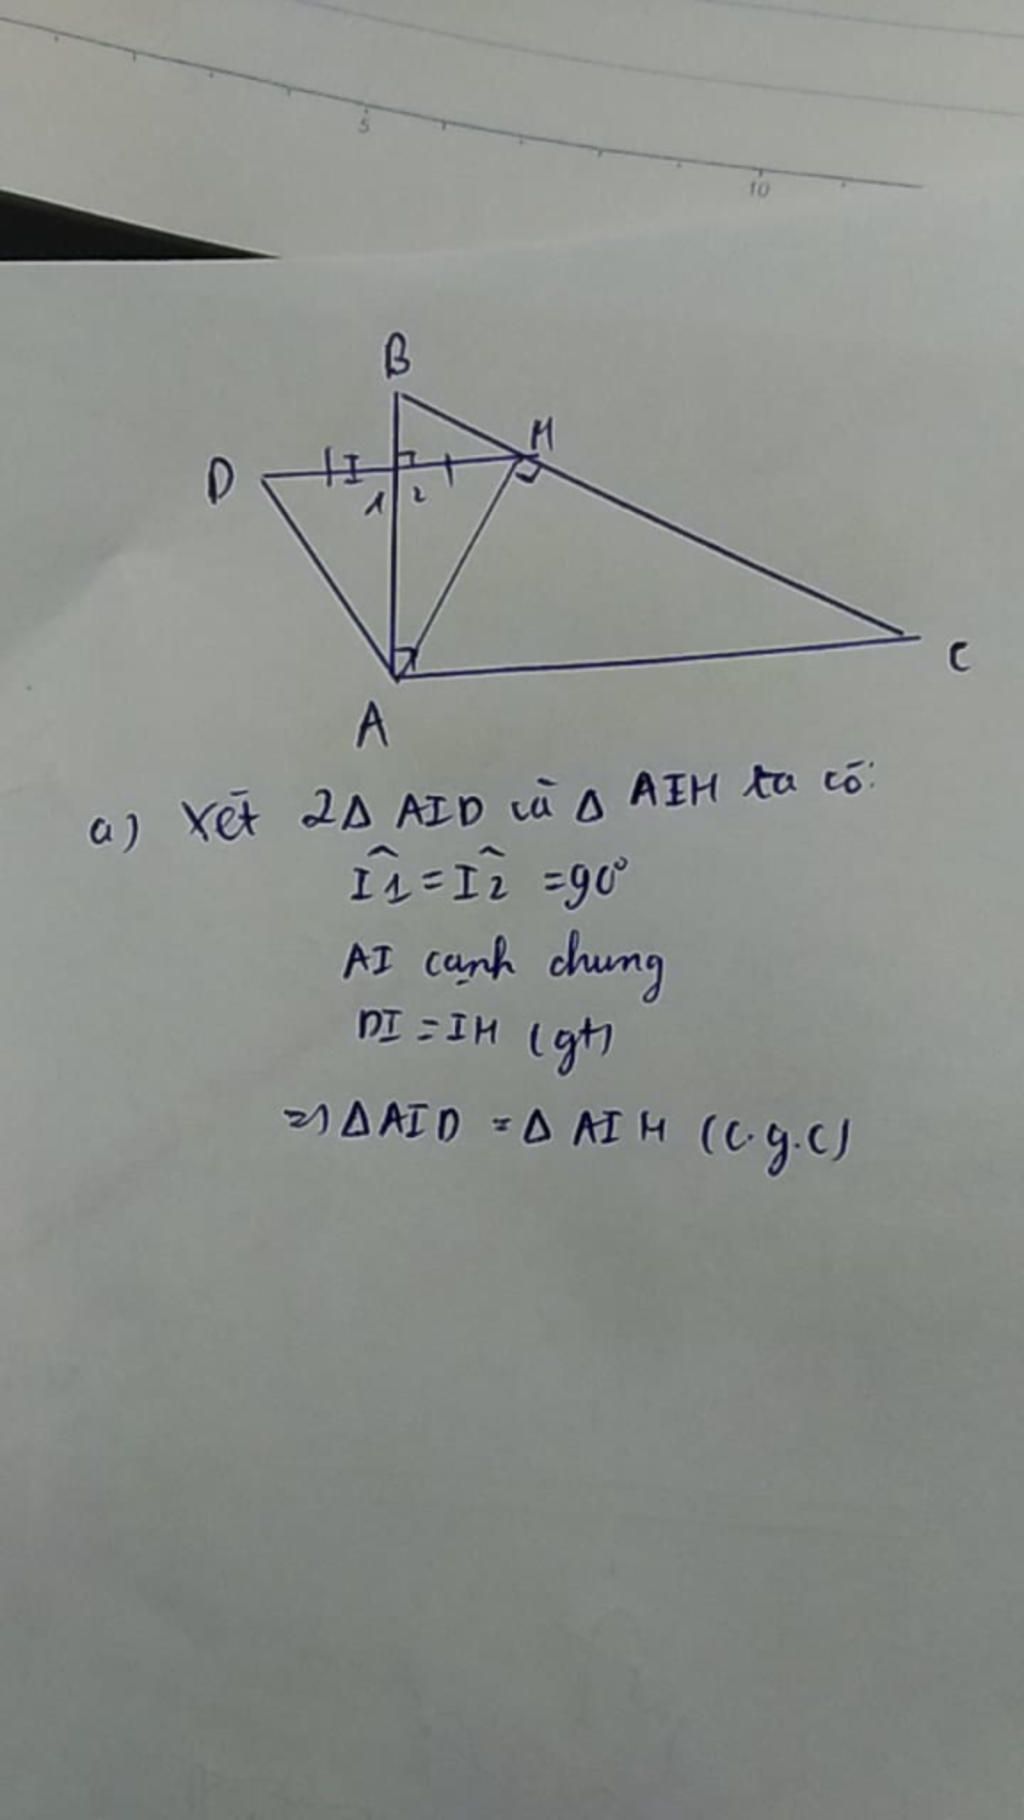 5
10
B
H
D
I
1 2
A
C
a) Xét 2Δ AID và Δ AIH ta có:
I1̂ = I2̂ = 90°
AI cạnh chung
DI = IH (gt)
=> Δ AID = Δ AIH (c.g.c)